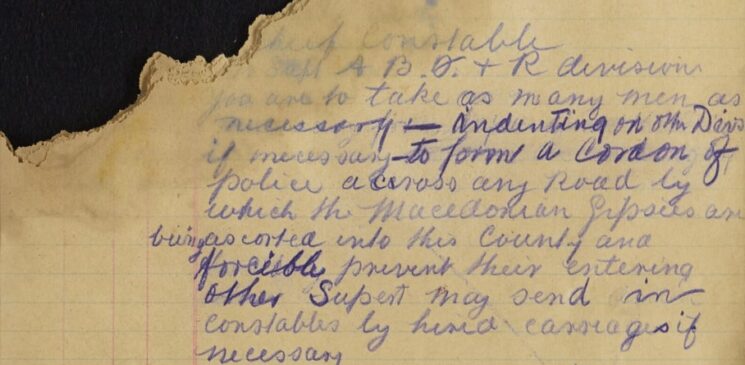 Chief Constable
Supt A B. D. + R division
you are to take as many men as
necessary — indenting on other Divs
if necessary to form a cordon of
police accross any Road by
which the Macedonian Gipsies are
being ascorted into this County and
forcible prevent their entering
other Supert may send in
constables by hired carriages if
necessary